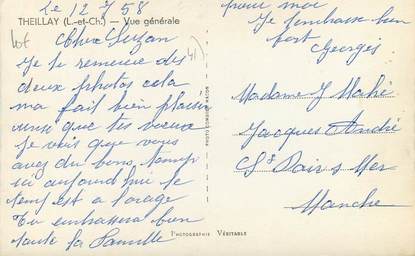 le 12 7 58
THEILLAY (L.-et-Ch.) — Vue générale
Cher Suzan
Je te remercie des
deux photos cela
ma fait bien plaisir
ainsi que tes voeux
Je vais que vous
avez du bons temps
ici aujourd'hui le
temps est a l'orage
Tu embrassera bien
toute la famille
PHOTOGRAPHIE VÉRITABLE
pour moi
Je t'embrasse bien
fort
Georges
Madame J Mahé
Jacques André
St Pair s Mer
Manche